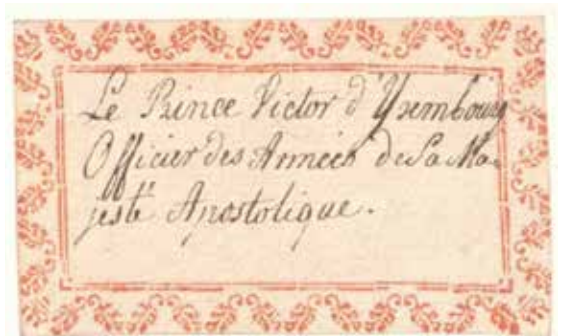 Le Prince Victor d'Ysembourg
Officier des Armées de Sa Ma-
jesté Apostolique.